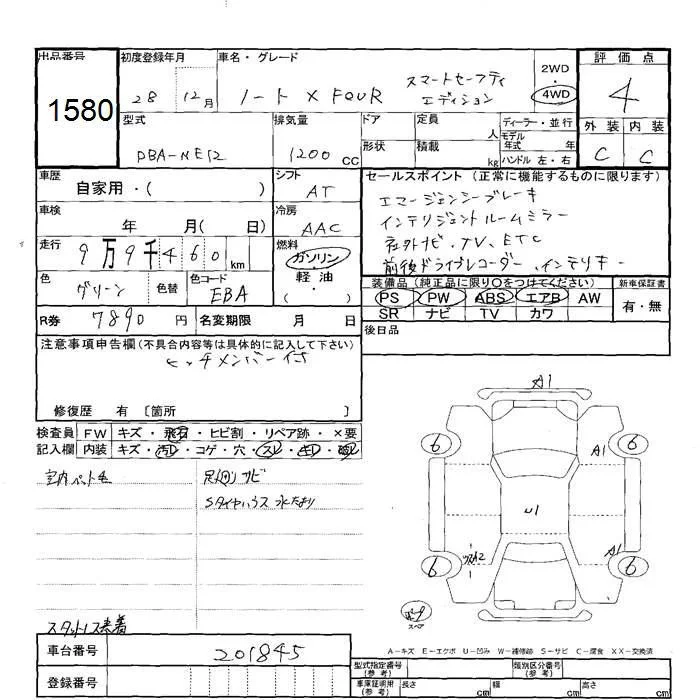 出品番号
1580
初度登録年月
28 12月
車名・グレード
ノート X FOUR スマートセーフティ
エディション
2WD
・
4WD
評価点
4
外装 内装
C C
型式
DBA-NE12
排気量
1200 CC
ドア
形状
定員 人
積載 kg
ディーラー・並行
モデル
年式 年
ハンドル 左・右
車歴
自家用・( )
シフト
AT
車検
年 月( 日)
冷房
AAC
走行
9万9千460 km
燃料
ガソリン
・
軽油
・
( )
色
グリーン
色替
色コード
EBA
R券 7890 円
名変期限 月 日
セールスポイント (正常に機能するものに限ります)
エマージェンシーブレーキ
インテリジェントルームミラー
社外ナビ、TV、ETC
前後ドライブレコーダー、インテリキー
装備品(純正品に限り○をつけてください)
PS PW ABS エアB AW
SR ナビ TV カワ
新車保証書
有・無
後日品
注意事項申告欄(不具合内容等は具体的に記入して下さい)
ヒッチメンバー付
修復歴 有 〔箇所 〕
検査員
記入欄
FW キズ・飛石・ヒビ割・リペア跡・×要
内装 キズ・汚レ・コゲ・穴・スレ・
足回りサビ
Sタイヤハウス
スタットレス装着
A1
6 6
A1
U1
A2 A1
6 6
スペア
A-キズ E-エクボ U-凹み W-補修跡 S-サビ C-腐食 XX-交換済
車台番号 201845
登録番号
型式指定番号
(参考)
類別区分番号
(参考)
車庫証明用
(参考)
長さ cm 幅 cm 高さ cm